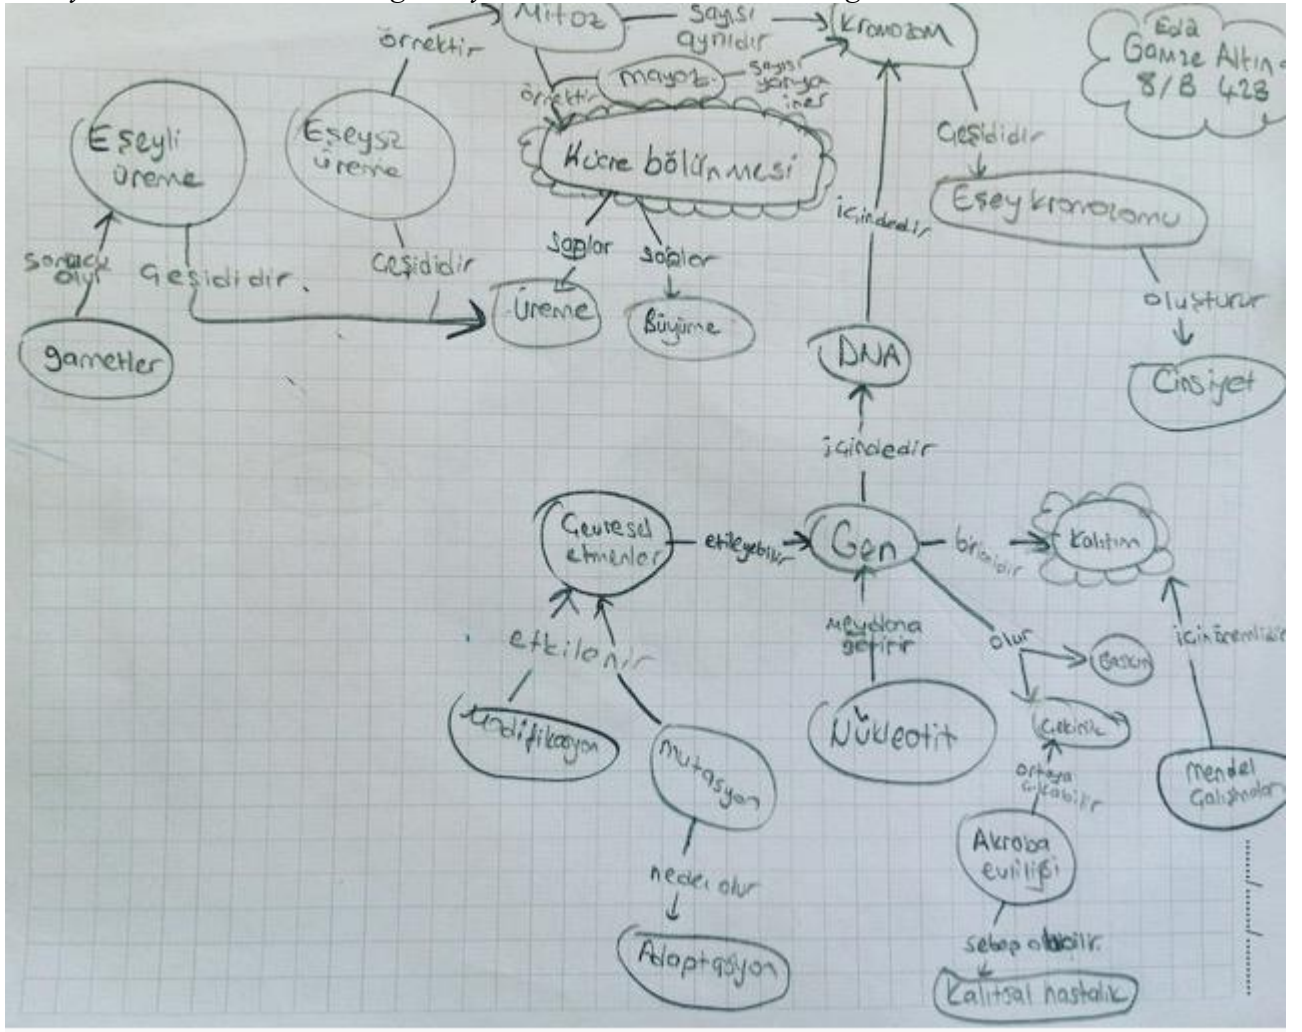 Mitoz
Sayısı
aynıdır
Kromozom
Eda
Gamze Altın
8/B 423
örnektir
mayoz
sayısı
yarıya
iner
örnektir
Eşeyli
üreme
Eşeysz
üreme
Hücre bölünmesi
Çeşididir
Eşey kromozomu
içindedir
sonucu
olur
Çeşididir
Çeşididir
sağlar
sağlar
oluşturur
gametler
üreme
Büyüme
DNA
Cinsiyet
içindedir
Çevresel
etmenler
etkileyebilir
Gen
birimidir
Kalıtım
etkilenir
meydana
getirir
olur
Baskın
için önemlidir
Modifikasyon
Mutasyon
Nükleotit
Çekinik
ortaya
çıkabilir
Mendel
Çalışmaları
neden olur
Akraba
evliliği
Adaptasyon
sebep olabilir
Kalıtsal hastalık